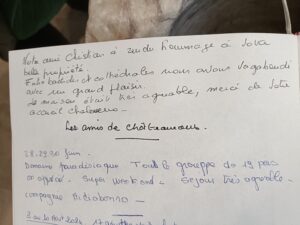 Notre ami Christian a rendu hommage à votre
belle propriété.
Entre bastides et cathédrales nous avons vagabondé
avec un grand plaisir.
La maison était très agréable, merci de votre
accueil chaleureux.
Les amis de
28.29.30 Juin
Domaine paradisiaque Tout le groupe de 19 pas
Super Week end - Séjour très agréable
compagnie